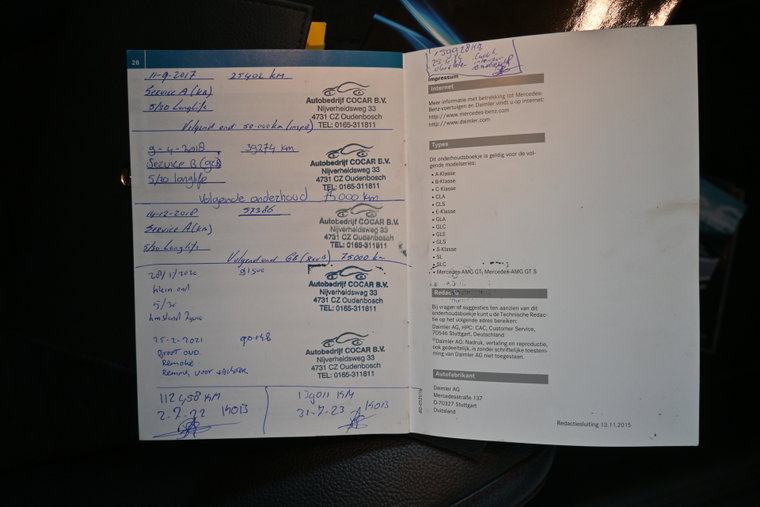 28
11-9-2017 25402 KM
Service A (kn)
5/30 Longlife
Volgend ond 50-000km
Autobedrijf COCAR B.V.
Nijverheidsweg 33
4731 CZ Oudenbosch
TEL: 0165-311811
9-4-2018 39274 km
Service B (gr)
5/30 longlife
Volgende onderhoud 75000 km
Autobedrijf COCAR B.V.
Nijverheidsweg 33
4731 CZ Oudenbosch
TEL: 0165-311811
14-12-2018 57386
Service A (kn)
5/30 Longlife
Volgend ond 75000 km
Autobedrijf COCAR B.V.
Nijverheidsweg 33
4731 CZ Oudenbosch
TEL: 0165-311811
28/1/2020
klein ond
5/30
Autobedrijf COCAR B.V.
Nijverheidsweg 33
4731 CZ Oudenbosch
TEL: 0165-311811
25-2-2021
groot ond.
Remolie
Remmen voor
Autobedrijf COCAR B.V.
Nijverheidsweg 33
4731 CZ Oudenbosch
TEL: 0165-311811
112458 KM
2-7-22
139011 KM
31-7-23
159928 KM
Impressum
Internet
Meer informatie met betrekking tot Mercedes-
Benz-voertuigen en Daimler vindt u op internet:
http://www.mercedes-benz.com
http://www.daimler.com
Types
Dit onderhoudsboekje is geldig voor de vol-
gende modelseries:
• A-Klasse
• B-Klasse
• C-Klasse
• CLA
• CLS
• E-Klasse
• GLA
• GLC
• GLE
• GLS
• S-Klasse
• SL
• SLC
• Mercedes-AMG GT, Mercedes-AMG GT S
Redac
Bij vragen of suggesties ten aanzien van dit
onderhoudsboekje kunt u de Technische Redac-
tie op het volgende adres bereiken:
Daimler AG, HPC: CAC, Customer Service,
70546 Stuttgart, Deutschland
©Daimler AG: Nadruk, vertaling en reproductie,
ook gedeeltelijk, is zonder schriftelijke toestem-
ming van Daimler AG niet toegestaan.
Autofabrikant
Daimler AG
Mercedesstraße 137
D-70327 Stuttgart
Duitsland
Redactiesluiting 13.11.2015